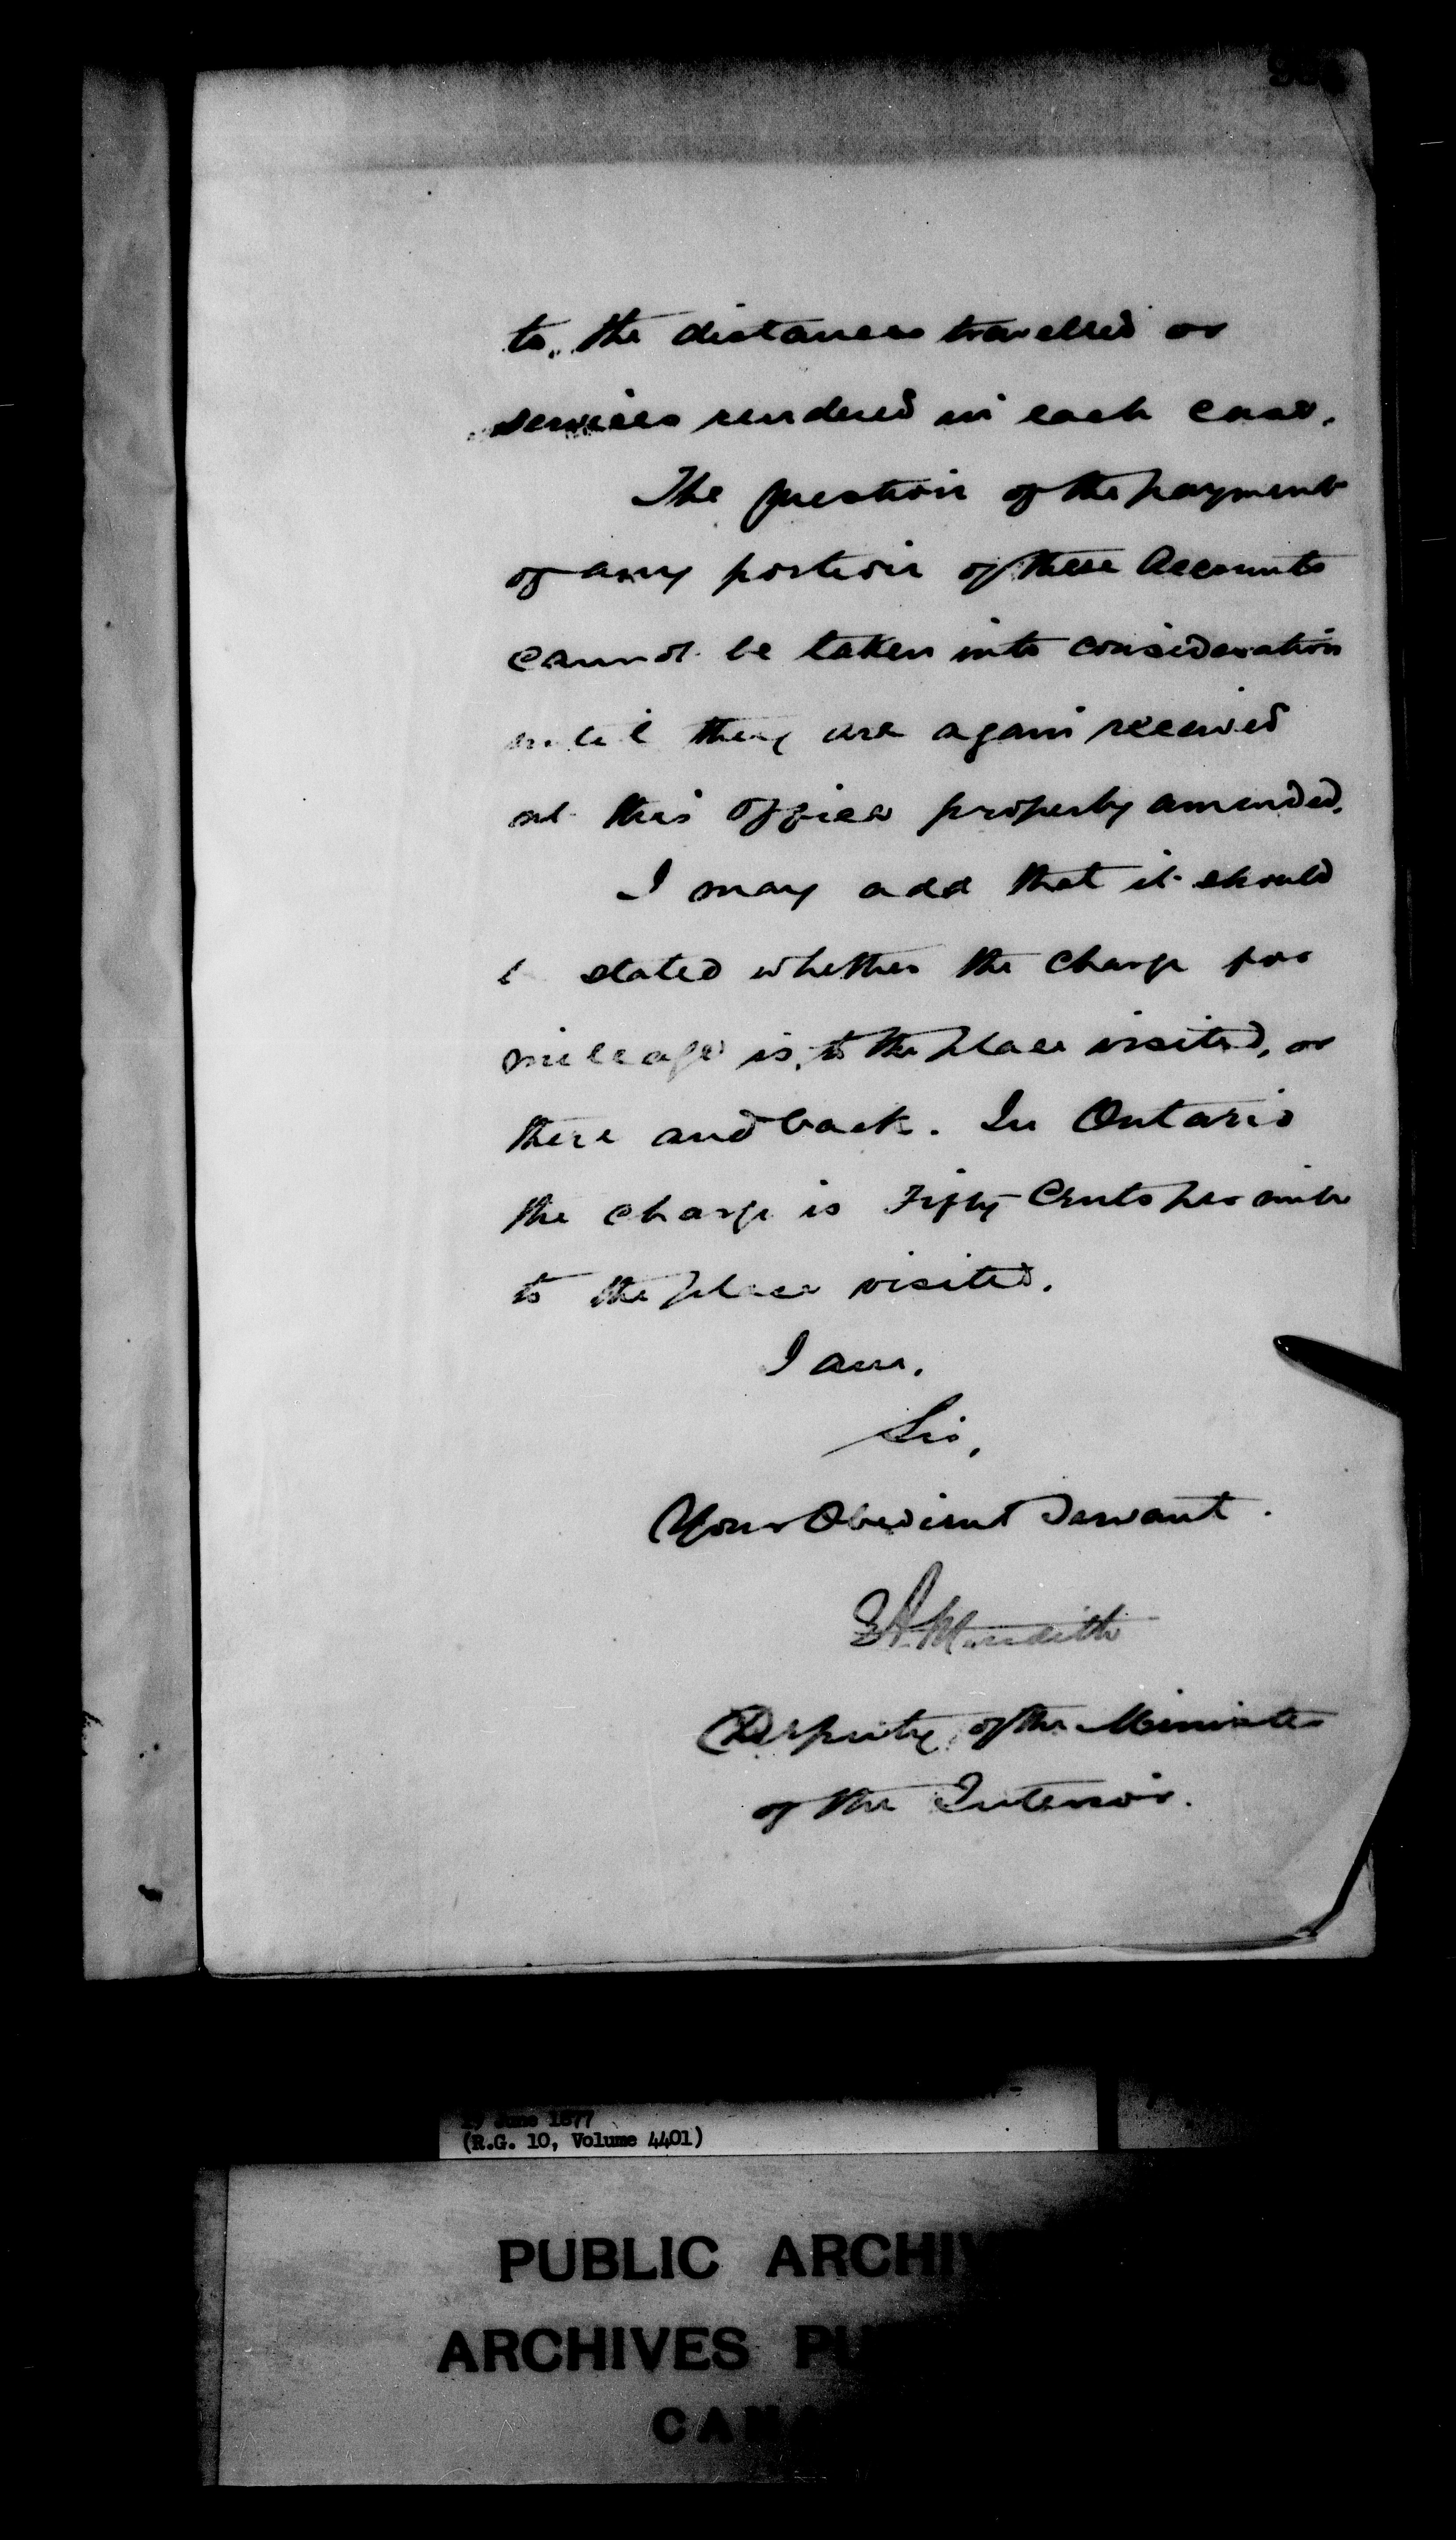 to the distances travelled or
services rendered in each case.
The question of the payment
of any portion of these Accounts
cannot be taken into consideration
until they are again received
at this Office properly amended.
I may add that it should
be stated whether the charge for
mileage is, to the place visited, or
there and back. In Ontario
the charge is Fifty Cents per mile
to the place visited.
I am,
Sir,
Your Obedient Servant.
E A Meredith
Deputy of the Minister
of the Interior.
June 1877
(R.G. 10, Volume 4401)
PUBLIC ARCHIV
ARCHIVES PU
CANA